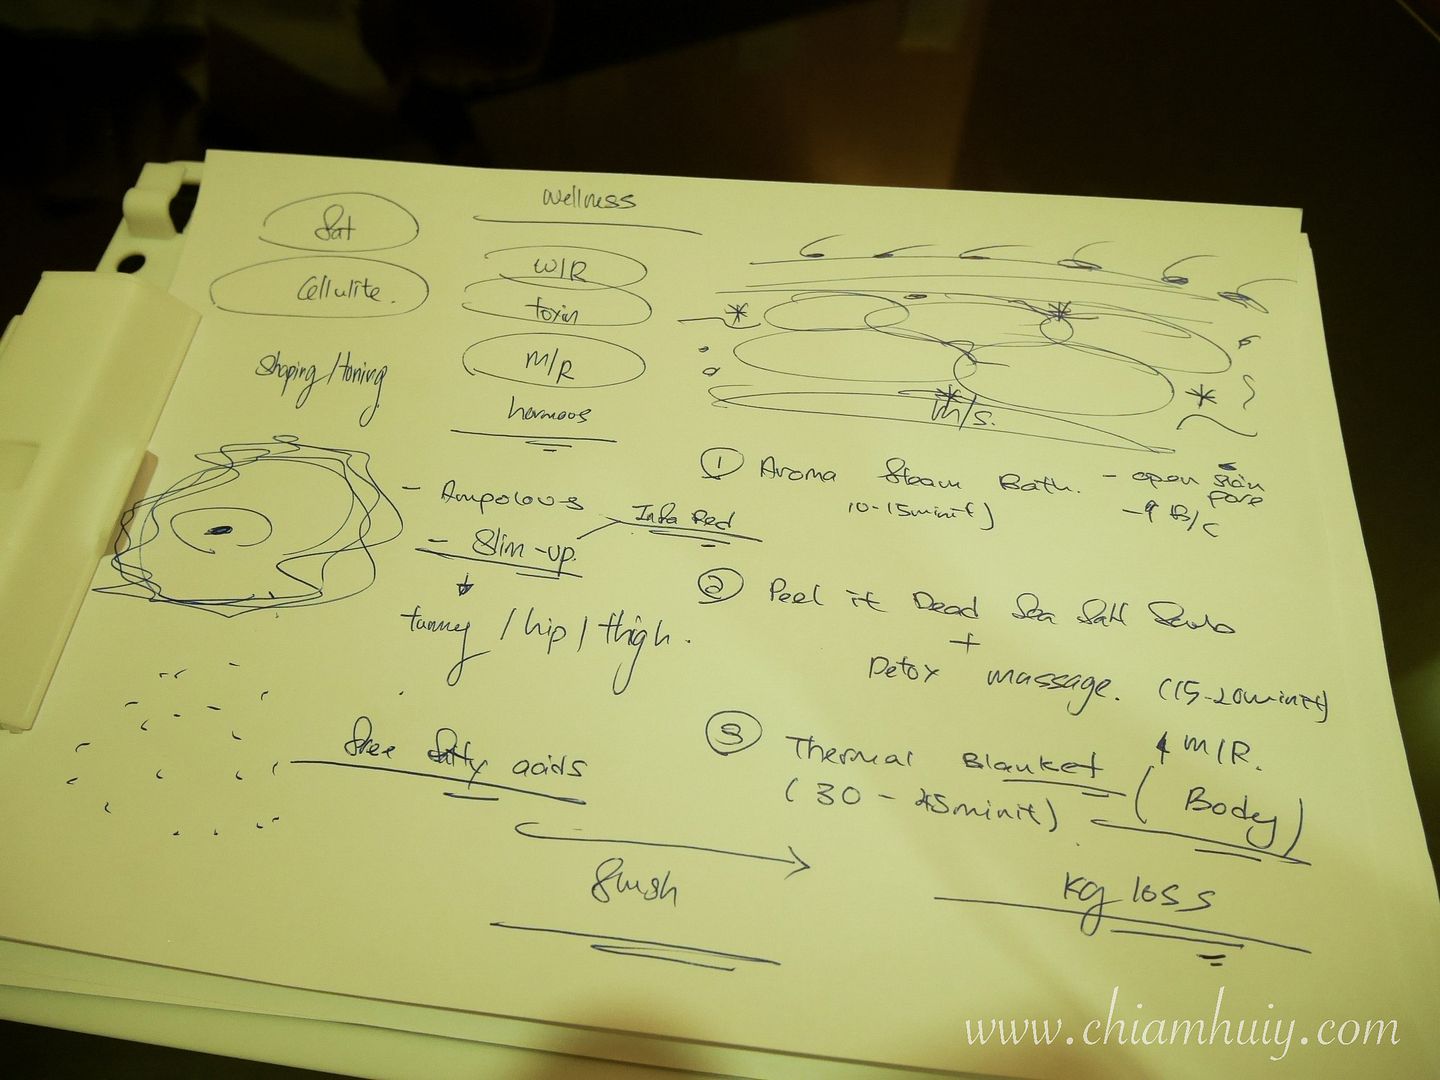 Fat
Cellulite.
Shaping/toning
Wellness
W/R
toxin
M/R
m/s.
- Ampolous
- Slim-up.
Infa Red
tummy / hip / thigh.
Free fatty acids
flush
① Aroma Steam Bath. - open skin pore
10-15minit)
- B/C
② Peel it Dead Sea Salt Scrub
+
Detox massage. (15-20minit)
③ Thermal Blanket
M/R.
(30-45minit)
(Body)
Kg loss
www.chiamhuiy.com